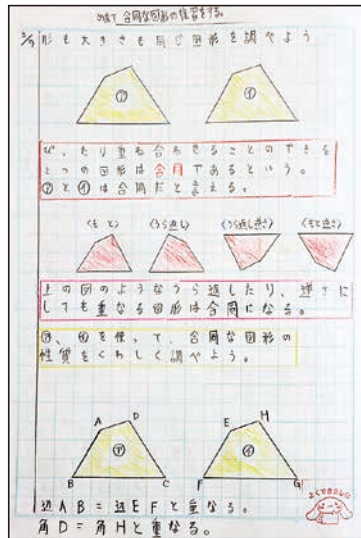 合同な図形の性質をする。
2/9 形も大きさも同じ図形を調べよう
㋐ ㋑
ぴったり重ね合わせることのできる
2つの図形は合同であるという。
㋐と㋑は合同だと言える。
〈もと〉 〈うら返し〉 〈うら返し逆さ〉 〈もと逆さ〉
上の図のようなうら返したり、逆さに
しても重なる図形は合同になる。
㋐、㋑を使って、合同な図形の
性質をくわしく調べよう。
A D E H
㋐ ㋑
B C F G
辺AB=辺EFと重なる。
角D=角Hと重なる。